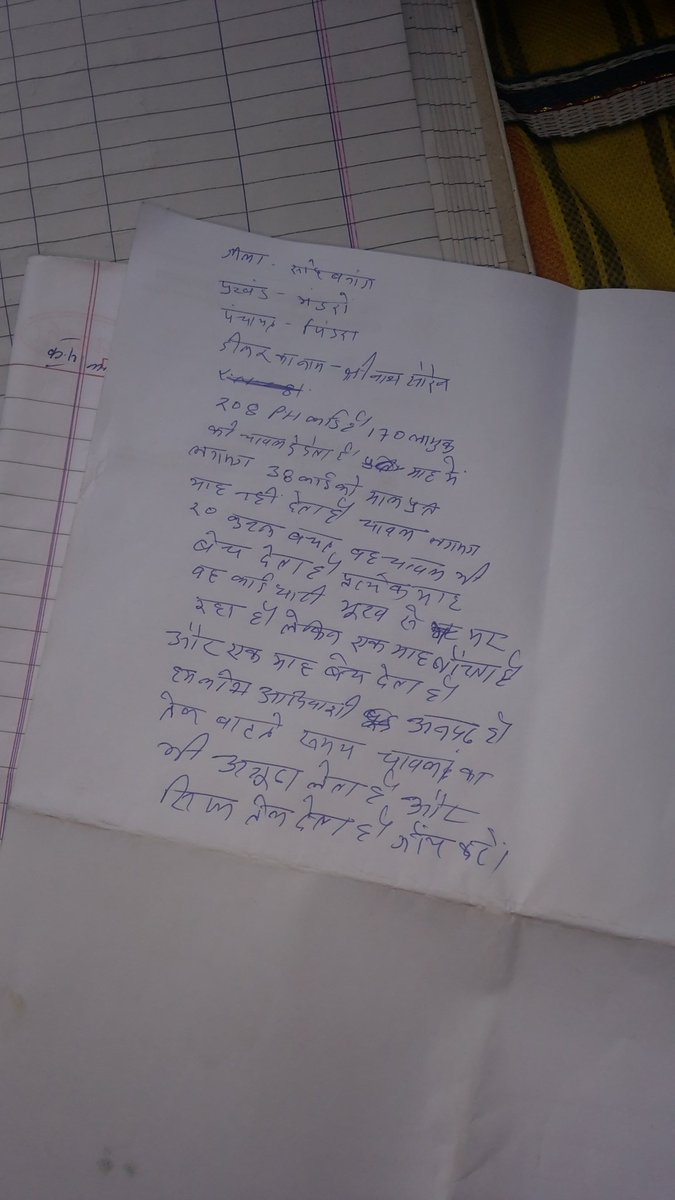 जीला - साहेबगंज
प्रखंड - मंडरो
पंचायत - पिंडरा
डीलर का नाम - श्रीनाथ सोरेन
208 PH कार्ड है, 170 लाभुक
को चावल देता है, माह में
लगभग 38 कार्ड को माल प्रति
माह नहीं देता है चावल लगभग
20 कुंटल बचत वह चावल भी
बेच देता है प्रत्येक माह
वह कार्डधारी भूख से मर
रहा है। लेकिन एक माह बाँटता है
और एक माह बेच देता है।
आदिवासी अनपढ़ है
तेल बाटते समय चावल का
भी अंगूठा लेता है और
सिर्फ तेल देता है जाँच करें।
पृ०